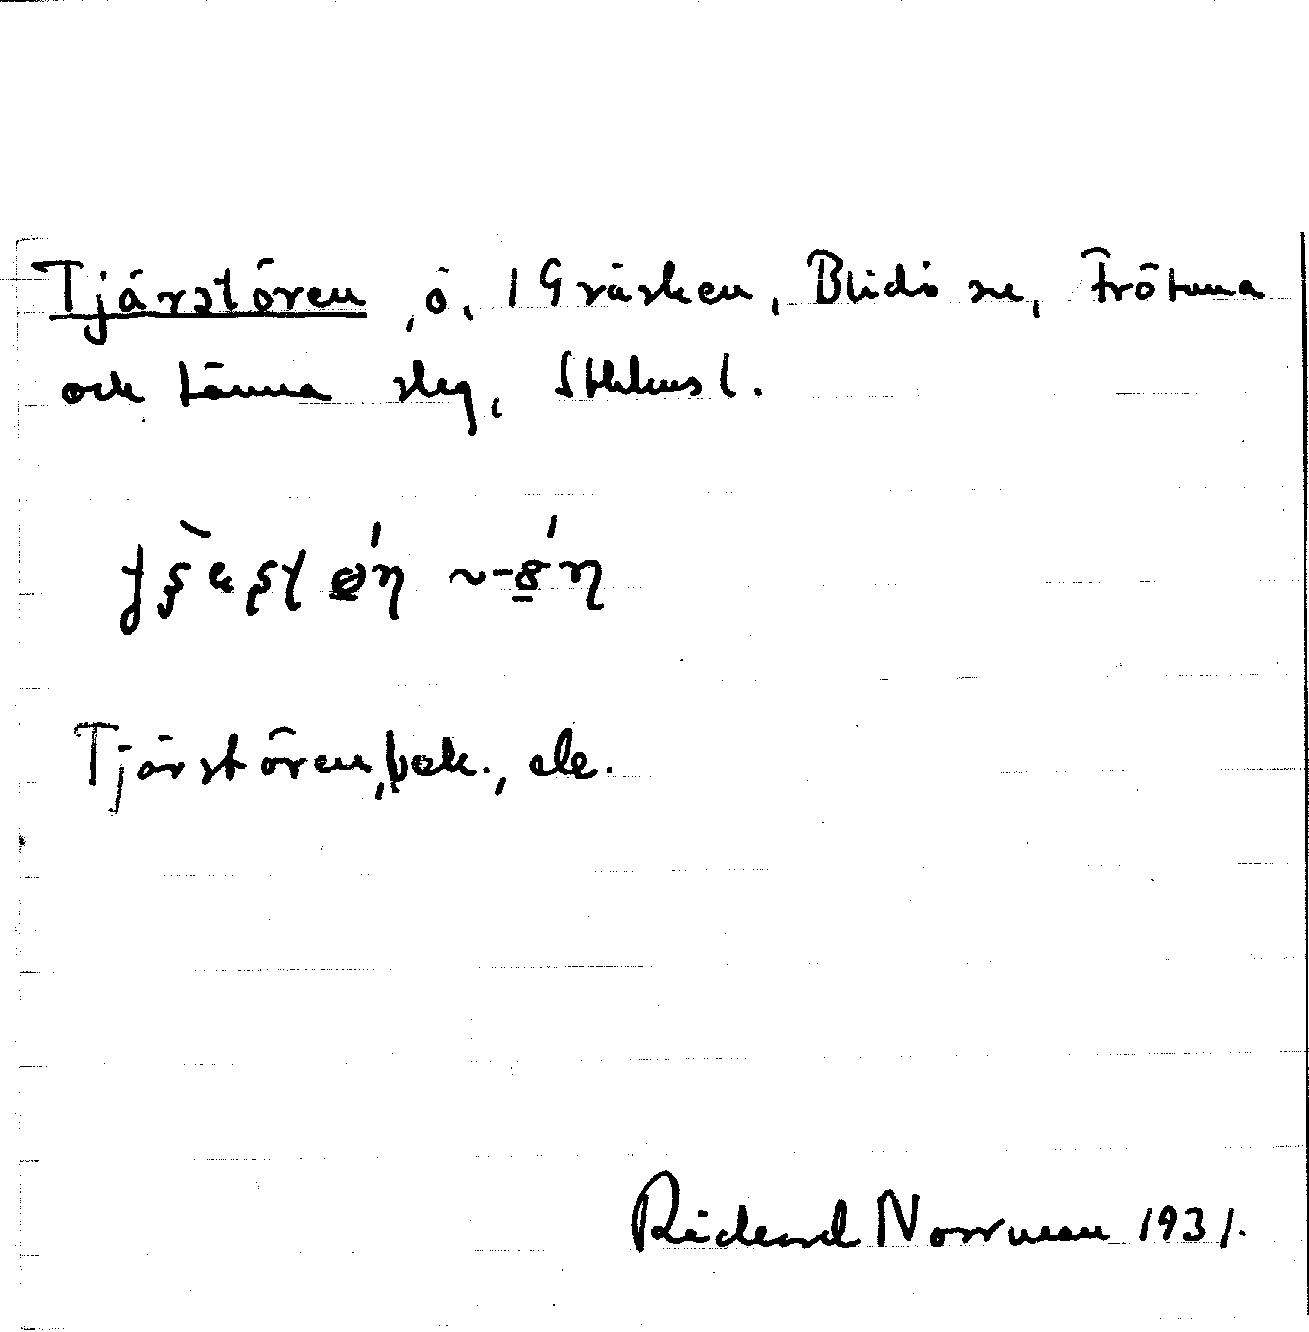 Tjärstören, ö, 1 Gräsken, Blidö sn, Frötuna
och Länna slg, Sthlms l.
Tjärstören, bek., ele.
Rickard Norrman 1931.